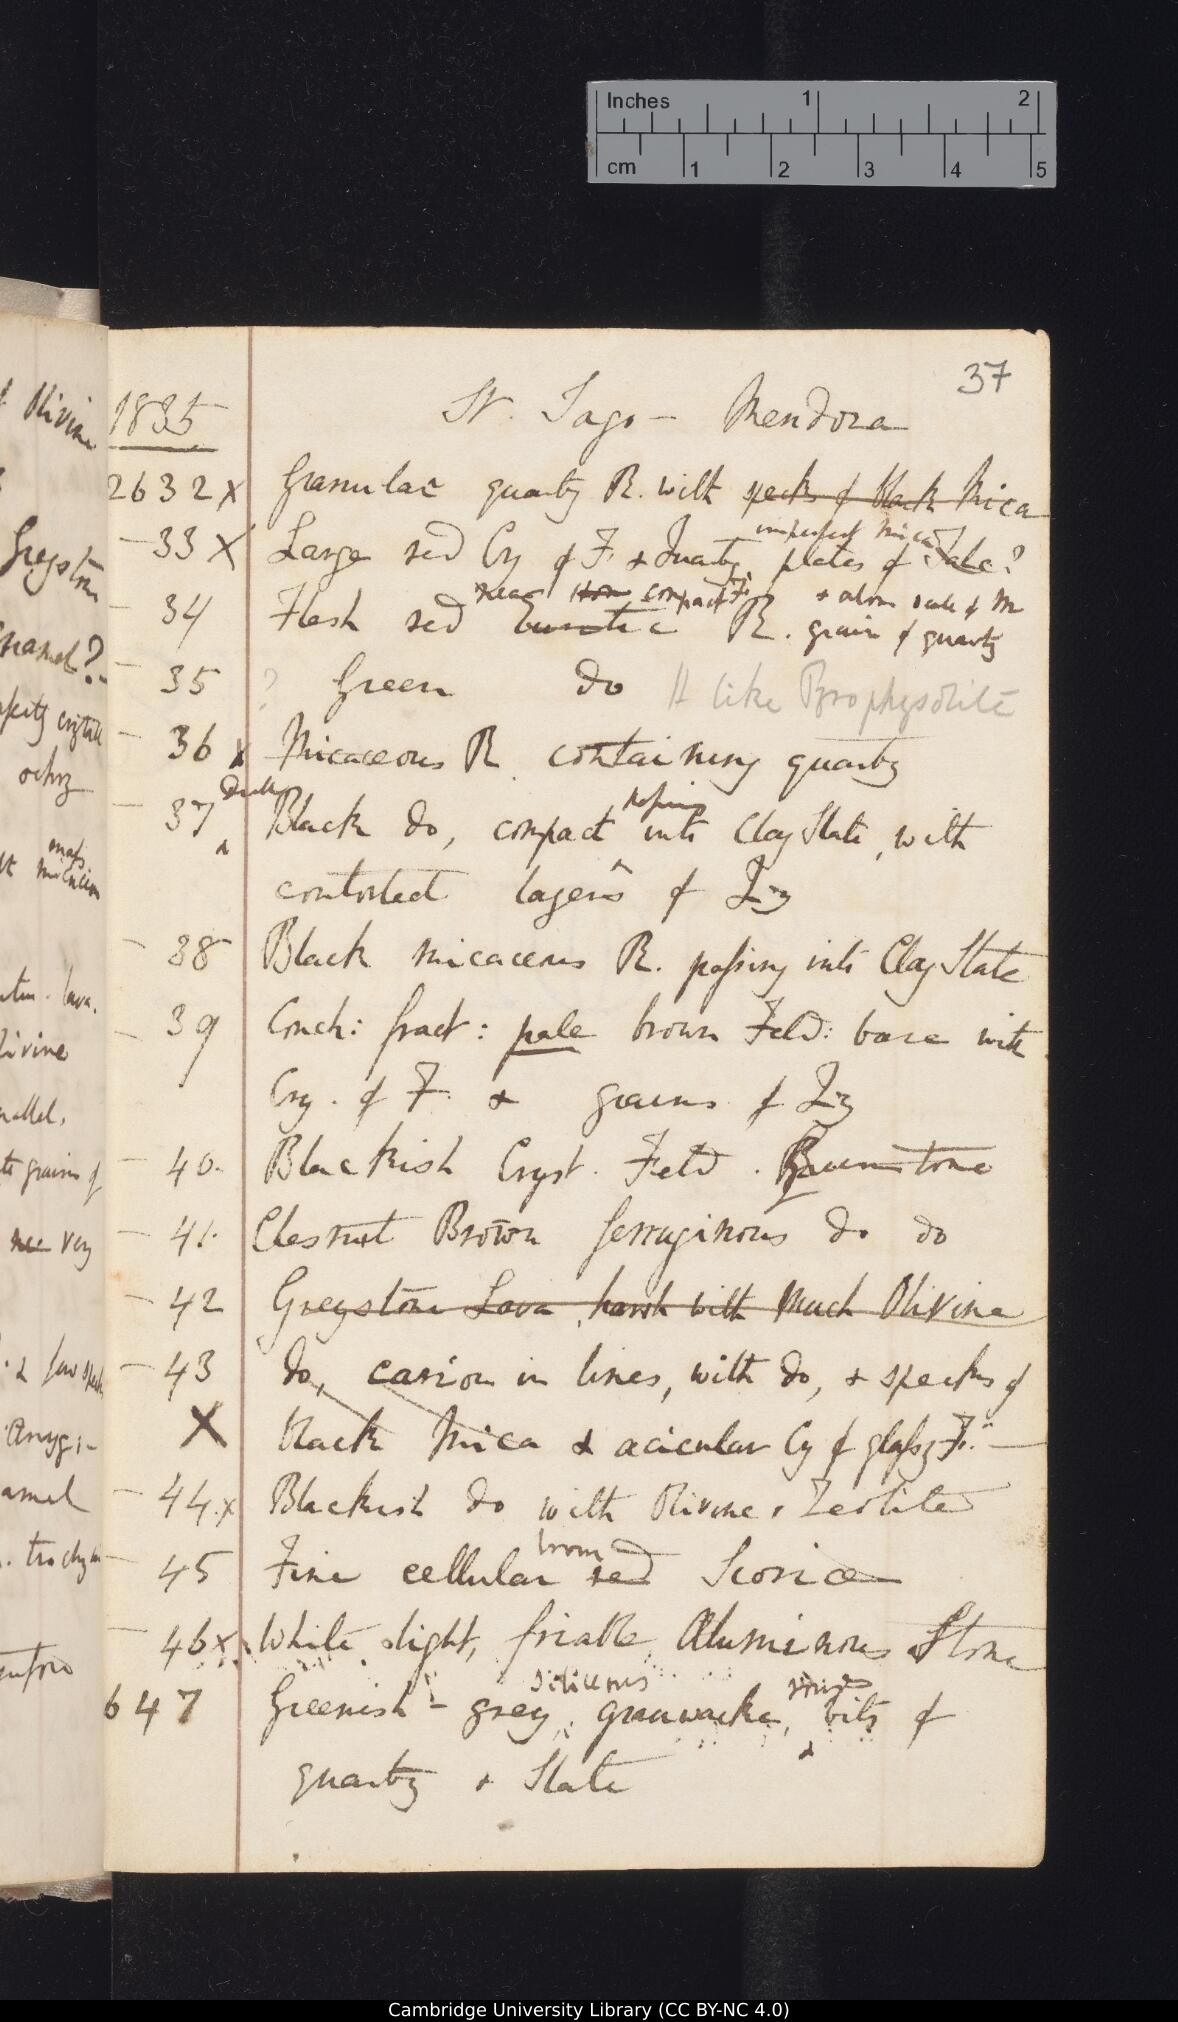 Inches 1 2
cm 1 2 3 4 5
37
1835 St. Jago — Mendoza
2632 x Granular quartz R. with specks of black Mica
imperfect mica
— 33 X Large red Cry of F. & Quartz, plates of Talc?
compact F. & atom
— 34 Flesh red R. grains of quartz
— 35 ? Green do
— 36 x Micaceous R. containing quartz
Dull passing
— 37 Black do, compact into Clay Slate, with
contorted layers of Qz
— 38 Black micaceous R. passing into Clay Slate
— 39 Conch: fract: pale brown Feld: base with
Cry. of F. & grains of Qz
— 40. Blackish Cryst. Feld.
— 41. Chesnut Brown ferruginous do do
— 42 Greystone Lava, harsh with Much Olivine
— 43 do, in lines, with do, & specks of
X black Mica & acicular Cy of glassy F. —
— 44. x Blackish do with Olivine & Zeolite
brown
— 45 Fine cellular red Scoriæ
— 46 x White light, friable Aluminous Stone
Siliceous
647 Greenish-grey, grauwacke, bits of
quartz & Slate
Olivine
Greyston
Enamel?
ochry
mass
lava.
Olivine
parallel.
grains of
very
& few specks
Amyg:
Cambridge University Library (CC BY-NC 4.0)